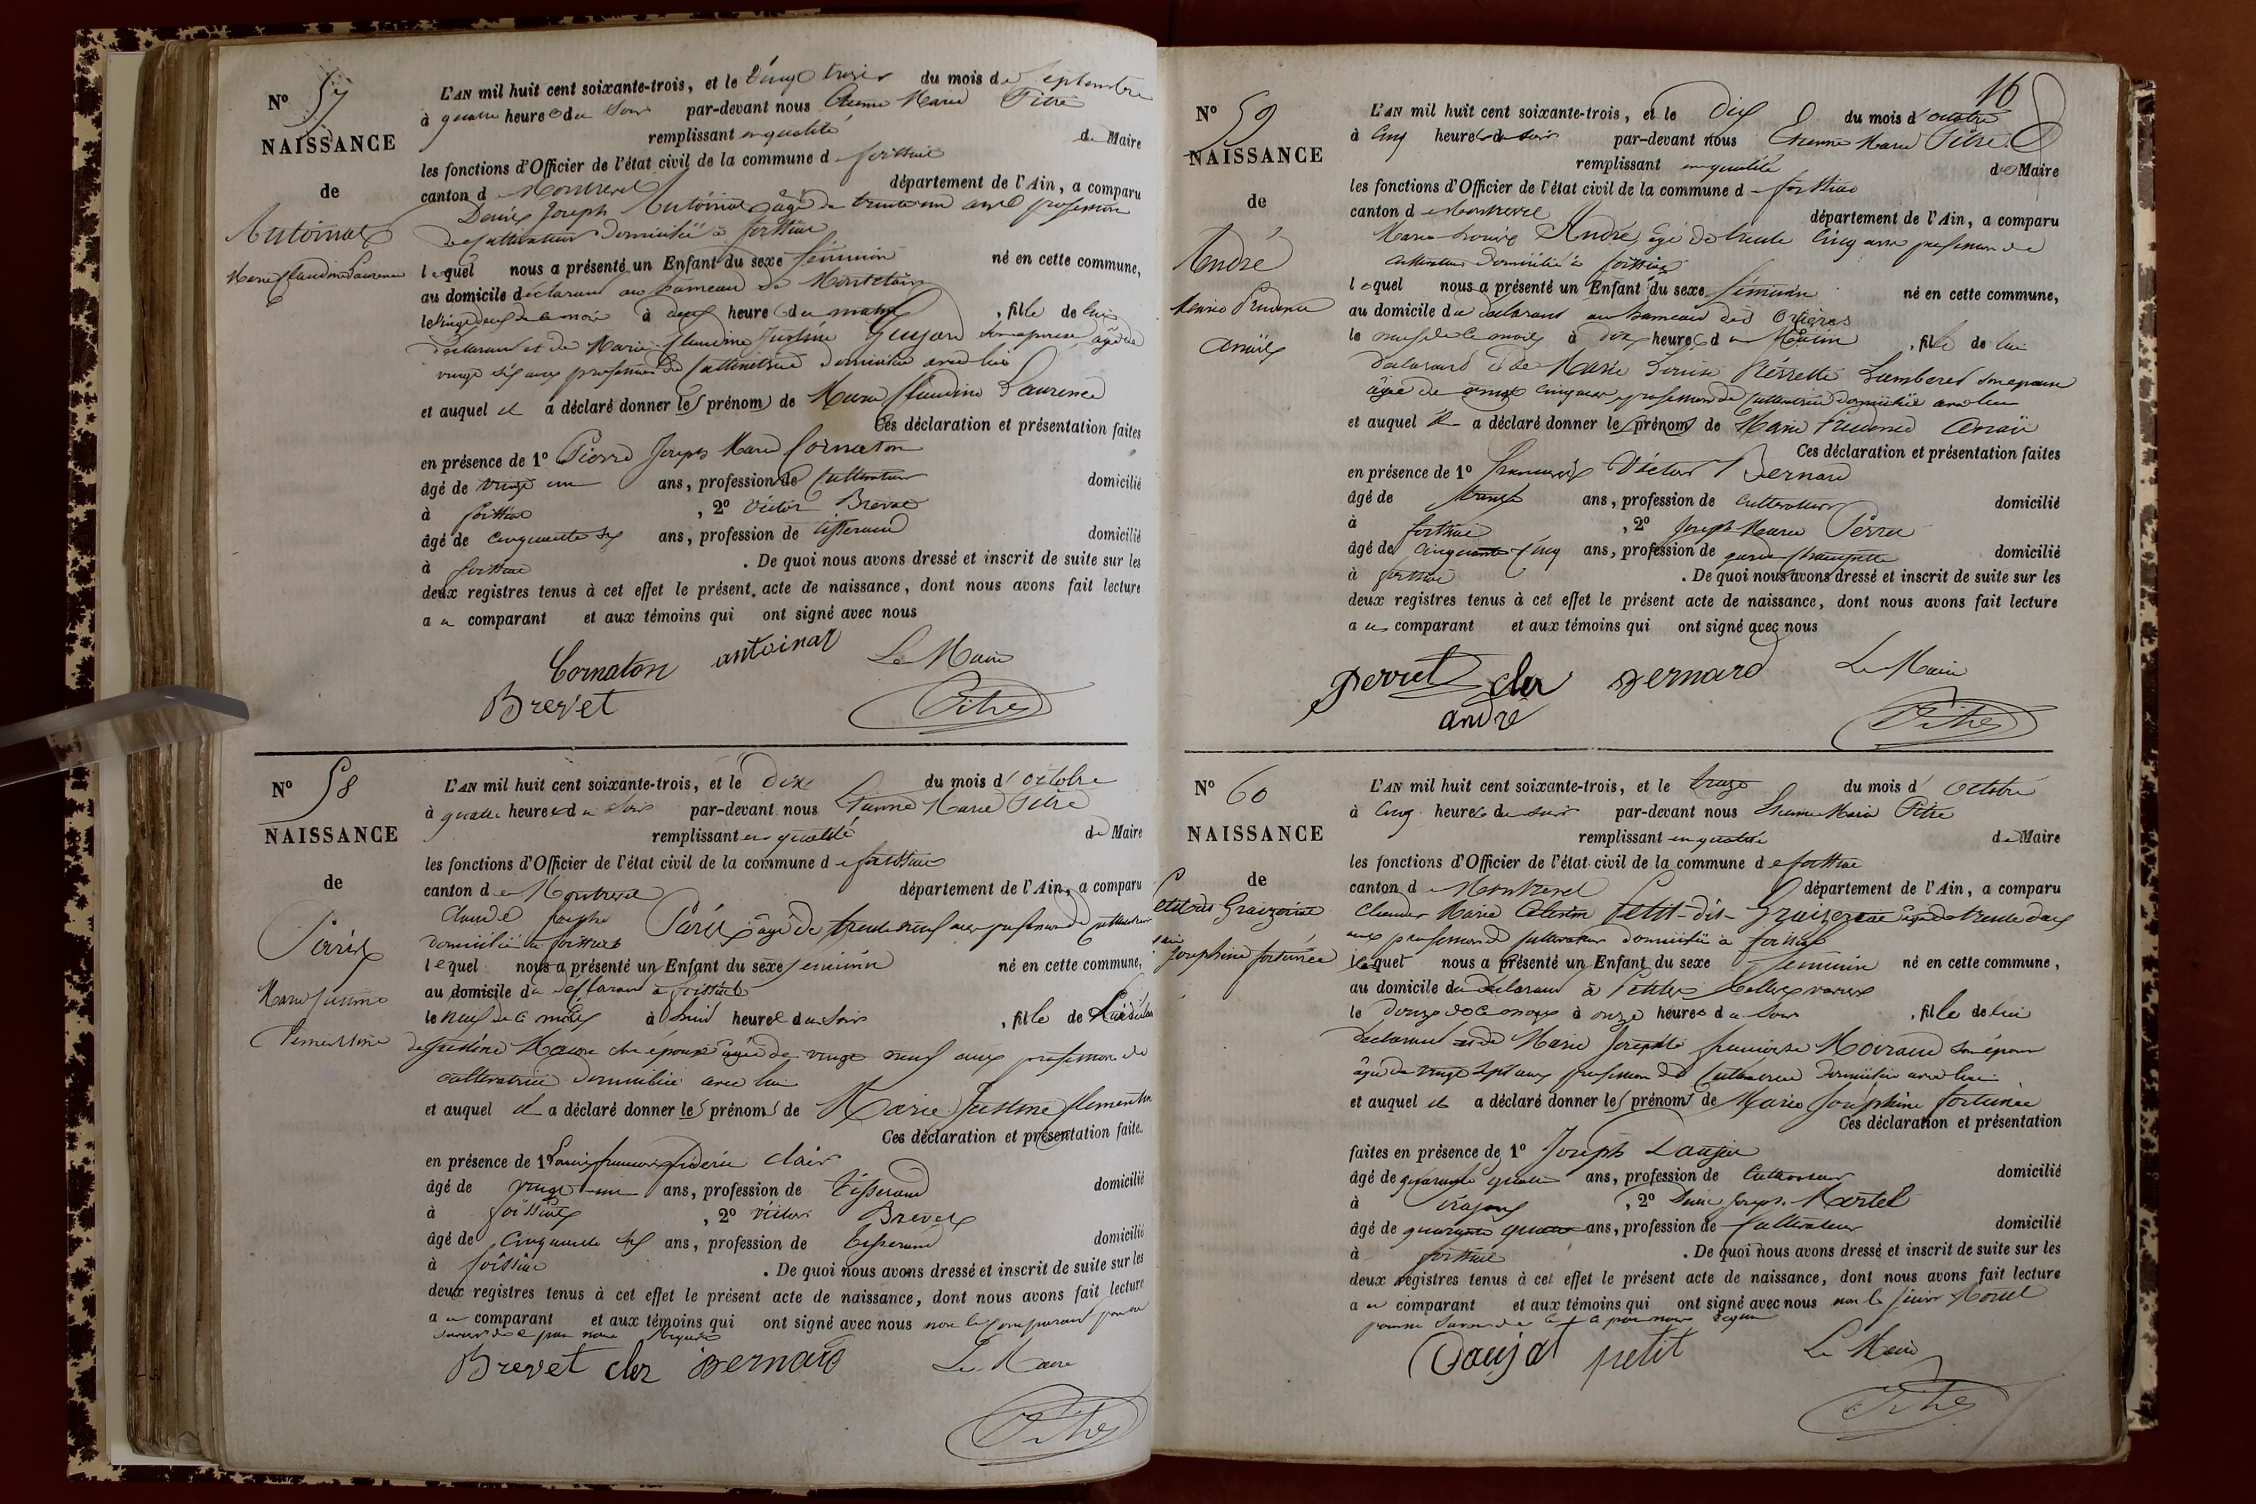 N° 57
NAISSANCE
de
Antoinat
Marie Claudine Laurence
L'AN mil huit cent soixante-trois, et le vingt trois du mois de Septembre
à quatre heures du soir par-devant nous Etienne Marie Pitre
remplissant en qualité de Maire
les fonctions d'Officier de l'état civil de la commune d
canton d Montrevel département de l'Ain, a comparu
Denis Joseph Antoinat âgé de trente un ans profession
de cultivateur domicilié à
lequel nous a présenté un Enfant du sexe féminin né en cette commune,
au domicile déclarant au hameau de
le vingt deux de ce mois à deux heures du matin, fille de lui
déclarant et de Marie Claudine Justine Guyard son épouse âgée de
vingt six ans profession de cultivatrice domiciliée avec lui
et auquel il a déclaré donner les prénoms de Marie Claudine Laurence
Ces déclaration et présentation faites
en présence de 1° Pierre Joseph Marie Cornaton
âgé de vingt un ans, profession de cultivateur domicilié
à , 2° Victor Brevet
âgé de cinquante six ans, profession de tisserand domicilié
à . De quoi nous avons dressé et inscrit de suite sur les
deux registres tenus à cet effet le présent acte de naissance, dont nous avons fait lecture
au comparant et aux témoins qui ont signé avec nous
Cornaton antoinat Le Maire
Brevet Pitre
N° 58
NAISSANCE
de
Paris
Marie Justine
Clémentine
L'AN mil huit cent soixante-trois, et le Dix du mois d'octobre
à quatre heures du soir par-devant nous Etienne Marie Pitre
remplissant en qualité de Maire
les fonctions d'Officier de l'état civil de la commune d
canton de Montrevel département de l'Ain, a comparu
Claude Joseph Paris âgé de trente neuf ans profession de cultivateur
domicilié à
lequel nous a présenté un Enfant du sexe féminin né en cette commune,
au domicile du déclarant à
le neuf de ce mois à huit heures du soir, fille de lui
de Justine son épouse âgée de vingt neuf ans profession de
cultivatrice domiciliée avec lui
et auquel il a déclaré donner les prénoms de Marie Justine Clémentine
Ces déclaration et présentation faites
en présence de 1° clair
âgé de vingt un ans, profession de tisserand domicilié
à , 2° Victor Brevet
âgé de cinquante six ans, profession de tisserand domicilié
à . De quoi nous avons dressé et inscrit de suite sur les
deux registres tenus à cet effet le présent acte de naissance, dont nous avons fait lecture
au comparant et aux témoins qui ont signé avec nous non le comparant pour ne
savoir de ce par nous requis
Brevet cler Bernard Le Maire
Pitre
16
N° 59
NAISSANCE
de
André
Marie Prudence
L'AN mil huit cent soixante-trois, et le Dix du mois d'octobre
à cinq heures du soir par-devant nous Etienne Marie Pitre
remplissant en qualité de Maire
les fonctions d'Officier de l'état civil de la commune d
canton d Montrevel département de l'Ain, a comparu
Marie Louis André, âgé de trente cinq ans profession de
cultivateur domicilié à
lequel nous a présenté un Enfant du sexe féminin né en cette commune,
au domicile du déclarant au hameau des
le neuf de ce mois à dix heures du matin, fille de lui
déclarant et de Marie Louise Pierrette son épouse
âgée de cinq ans profession de cultivatrice domiciliée avec lui
et auquel il a déclaré donner les prénoms de Marie Prudence
Ces déclaration et présentation faites
en présence de 1° François Victor Bernard
âgé de ans, profession de cultivateur domicilié
à , 2° Joseph Marie Perret
âgé de cinquante cinq ans, profession de garde champêtre domicilié
à . De quoi nous avons dressé et inscrit de suite sur les
deux registres tenus à cet effet le présent acte de naissance, dont nous avons fait lecture
au comparant et aux témoins qui ont signé avec nous
perret cler Bernard Le Maire
andré Pitre
N° 60
NAISSANCE
de
Petit dit Graizoine
Marie
Joséphine fortunée
L'AN mil huit cent soixante-trois, et le treize du mois d'Octobre
à cinq heures du soir par-devant nous Etienne Marie Pitre
remplissant en qualité de Maire
les fonctions d'Officier de l'état civil de la commune de
canton d Montrevel département de l'Ain, a comparu
Claude Marie Célestin Petit-dit- âgé de trente deux
ans profession de cultivateur domicilié à
lequel nous a présenté un Enfant du sexe féminin né en cette commune,
au domicile du déclarant à
le douze de ce mois à onze heures du soir, fille de lui
déclarant et de Marie Josephte françoise Moiraud son épouse
âgée de vingt sept ans profession de cultivatrice domiciliée avec lui
et auquel il a déclaré donner les prénoms de Marie Joséphine fortunée
Ces déclaration et présentation
faites en présence de 1° Joseph
âgé de quarante quatre ans, profession de cultivateur domicilié
à , 2° Joseph Martel
âgé de quarante quatre ans, profession de cultivateur domicilié
à . De quoi nous avons dressé et inscrit de suite sur les
deux registres tenus à cet effet le présent acte de naissance, dont nous avons fait lecture
au comparant et aux témoins qui ont signé avec nous non le
pour ne savoir de ce par nous requis
Daujat petit Le Maire
Pitre